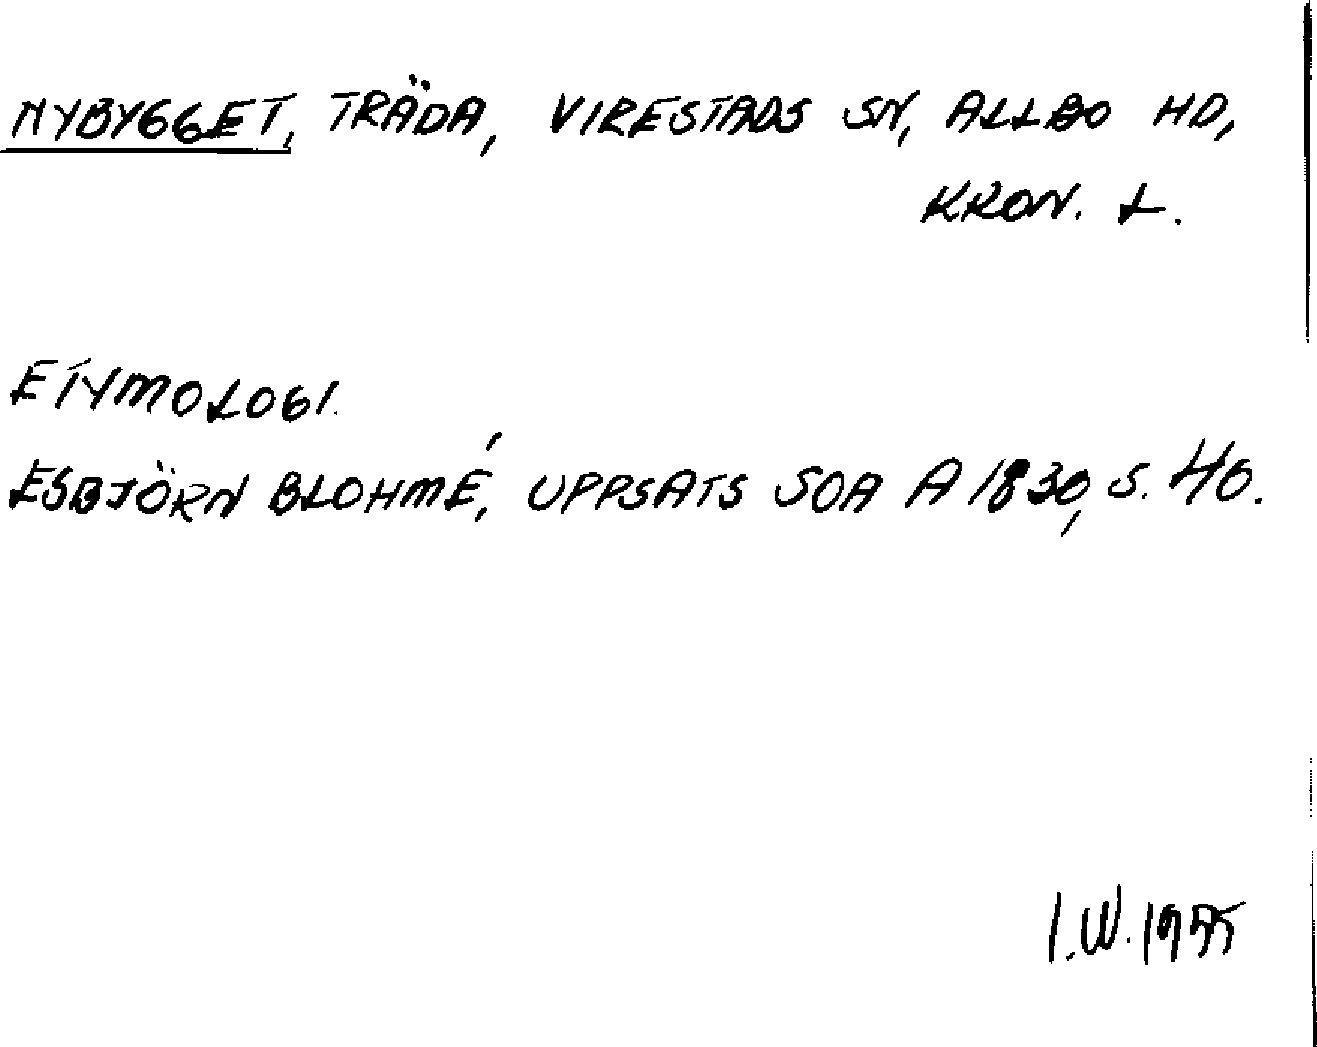 NYBYGGET, TRÄDA, VIRESTADS SN, ALLBO HD,
KRON. L.
ETYMOLOGI.
ESBJÖRN BLOHMÉ, UPPSATS SOA A 1830, S. 40.
I.W. 1955